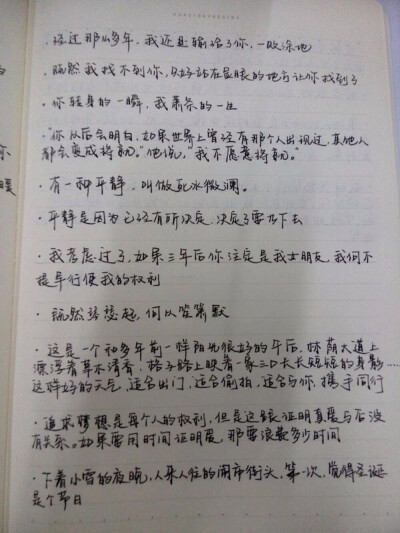 · 经过那么多年，我还是输给了你，一败涂地
· 既然我找不到你，只好站在显眼的地方让你找到了
· 你转身的一瞬，我萧条的一生
· "你以后会明白，如果世界上曾经有那个人出现过，其他人
都会变成将就。"他说，"我不愿意将就。"
· 有一种平静，叫做死水微澜。
· 平静是因为已经有所决定，决定了要忍下去
· 我考虑过了，如果三年后你注定是我女朋友，我何不
提早行使我的权利
· 骤然琴瑟起，何以笙箫默
· 这是一个和多年前一样阳光很好的午后，林荫大道上
漂浮着草木清香，格子路上映着一家三口长长短短的身影……
这样好的天气，适合出门，适合偷拍，适合与你，携手同行
· 追求梦想是每个人的权利，但是这跟证明真爱与否没
有关系。如果要用时间证明爱，那要浪费多少时间
· 下着小雪的夜晚，人来人往的闹市街头，第一次，觉得圣诞
是个节日